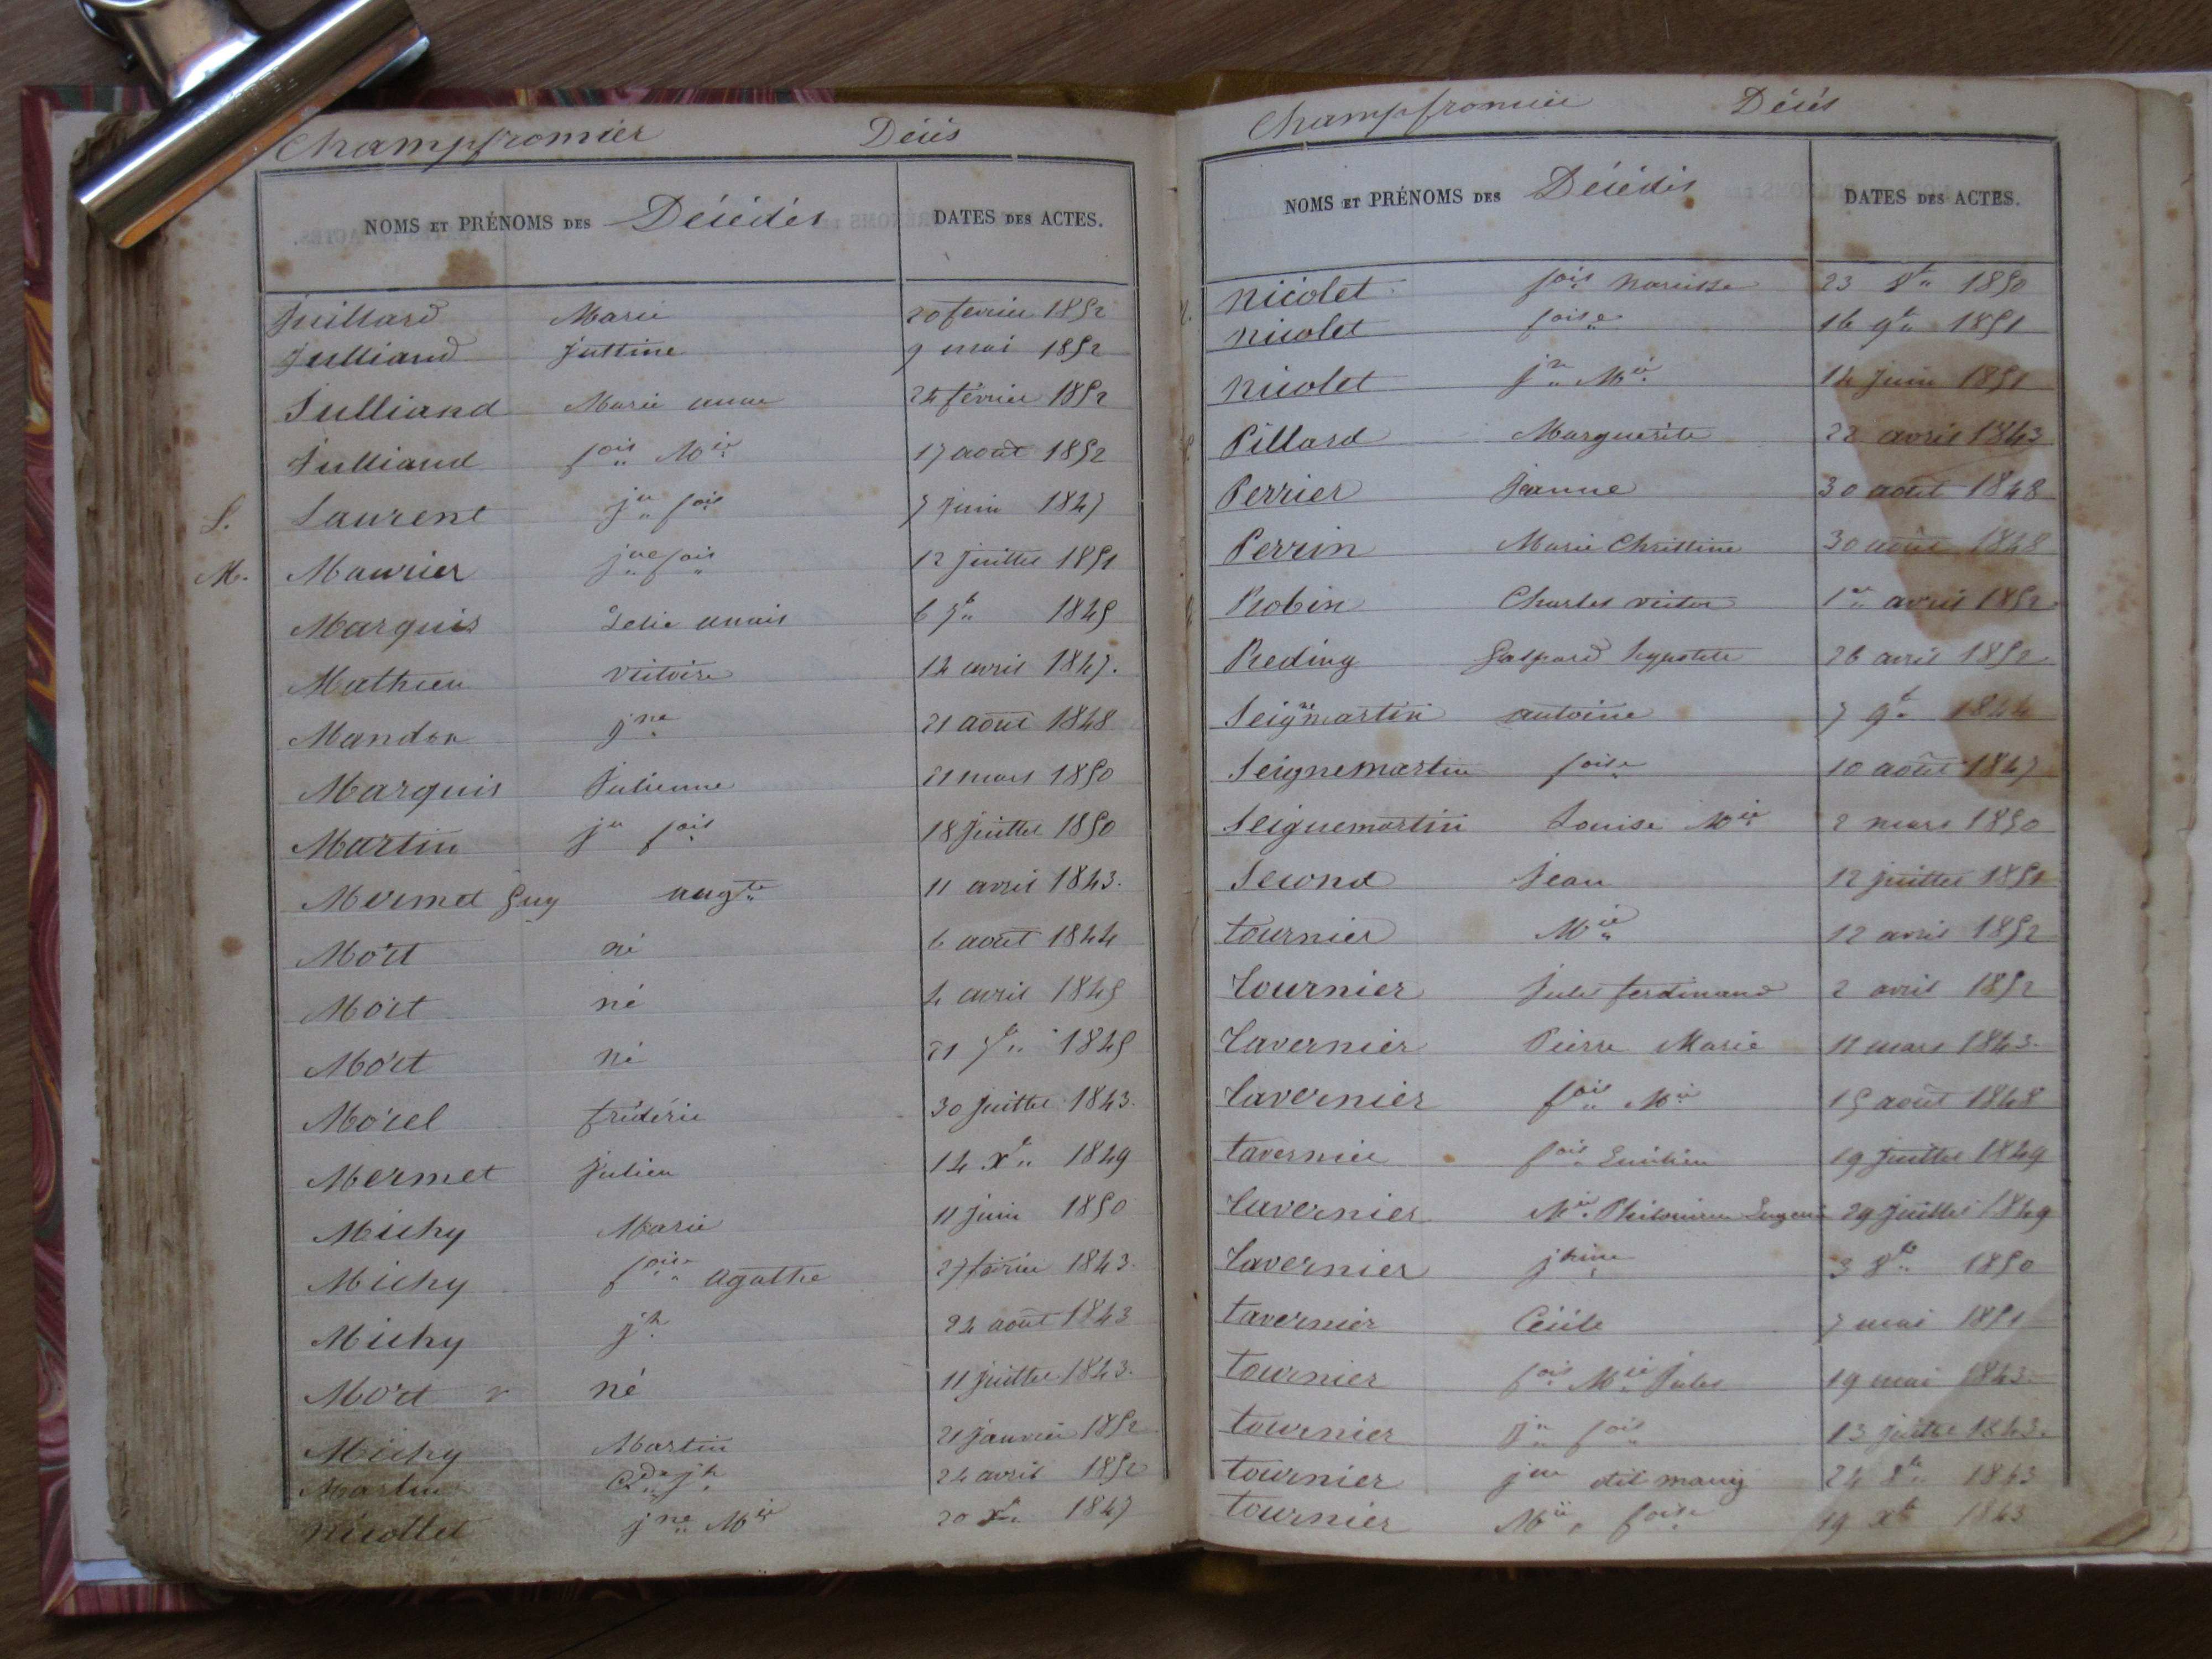 Champfromier Décès
NOMS ET PRÉNOMS DES Décédés DATES DES ACTES.
Juillard Marie 20 fevrier 1852
Julliand Justine 9 mai 1852
Julliand Marie anne 24 février 1852
Julliand fois Mie 17 août 1852
L. Laurent jn fois 7 juin 1847
M. Maurier jne fois 12 juillet 1851
Marquis Zelie anais 6 7b 1845
Mathieu victoire 14 avril 1847.
Mandon jne 21 août 1848
Marquis Julienne 21 mars 1850
Martin jn fois 18 juillet 1850
Mermet Guy augte 11 avril 1843.
Mort né 6 août 1844
Mort né 4 avril 1845
Mort né 21 1845
Morel frédéric 30 juillet 1843.
Mermet Julien 14 Xb 1849
Michy Marie 11 juin 1850
Michy foise agathe 27 février 1843.
Michy jh 24 août 1843
Mort né 11 juillet 1843.
Michy Martin 21 janvier 1852
Martin jh 24 avril 1852
Nicollet jne Mie 20 Xb 1847
Champfromier Décès
NOMS ET PRÉNOMS DES Décédés DATES DES ACTES.
Nicolet fois Narcisse 23 8b 1850
Nicolet foise 16 9b 1851
Nicolet jn Mie 14 juin 1851
Pillard Marguerite 22 avril 1843
Perrier Jeanne 30 août 1848
Perrin Marie Christine 30 août 1848
Robin Charles victor 1er avril 1852
Reding Gaspard hypolite 26 avril 1852
Seignemartin antoine 7 9b 1844
Seignemartin foise 10 août 1847
Seignemartin Louise Mie 2 mars 1850
Second Jean 12 juillet 1851
tournier Mie 12 avril 1852
tournier Jules ferdinand 2 avril 1852
tavernier Pierre Marie 11 mars 1843.
tavernier fois Mie 15 août 1848
tavernier fois Emilien 19 juillet 1849
tavernier Mie Eugenie 29 juillet 1849
tavernier jhine 3 8b 1850
tavernier Cécile 7 mai 1851
tournier fois Mie Jules 19 mai 1843
tournier jn fois 13 juillet 1843.
tournier jne dit 24 8b 1843
tournier Mie foise 19 Xb 1843